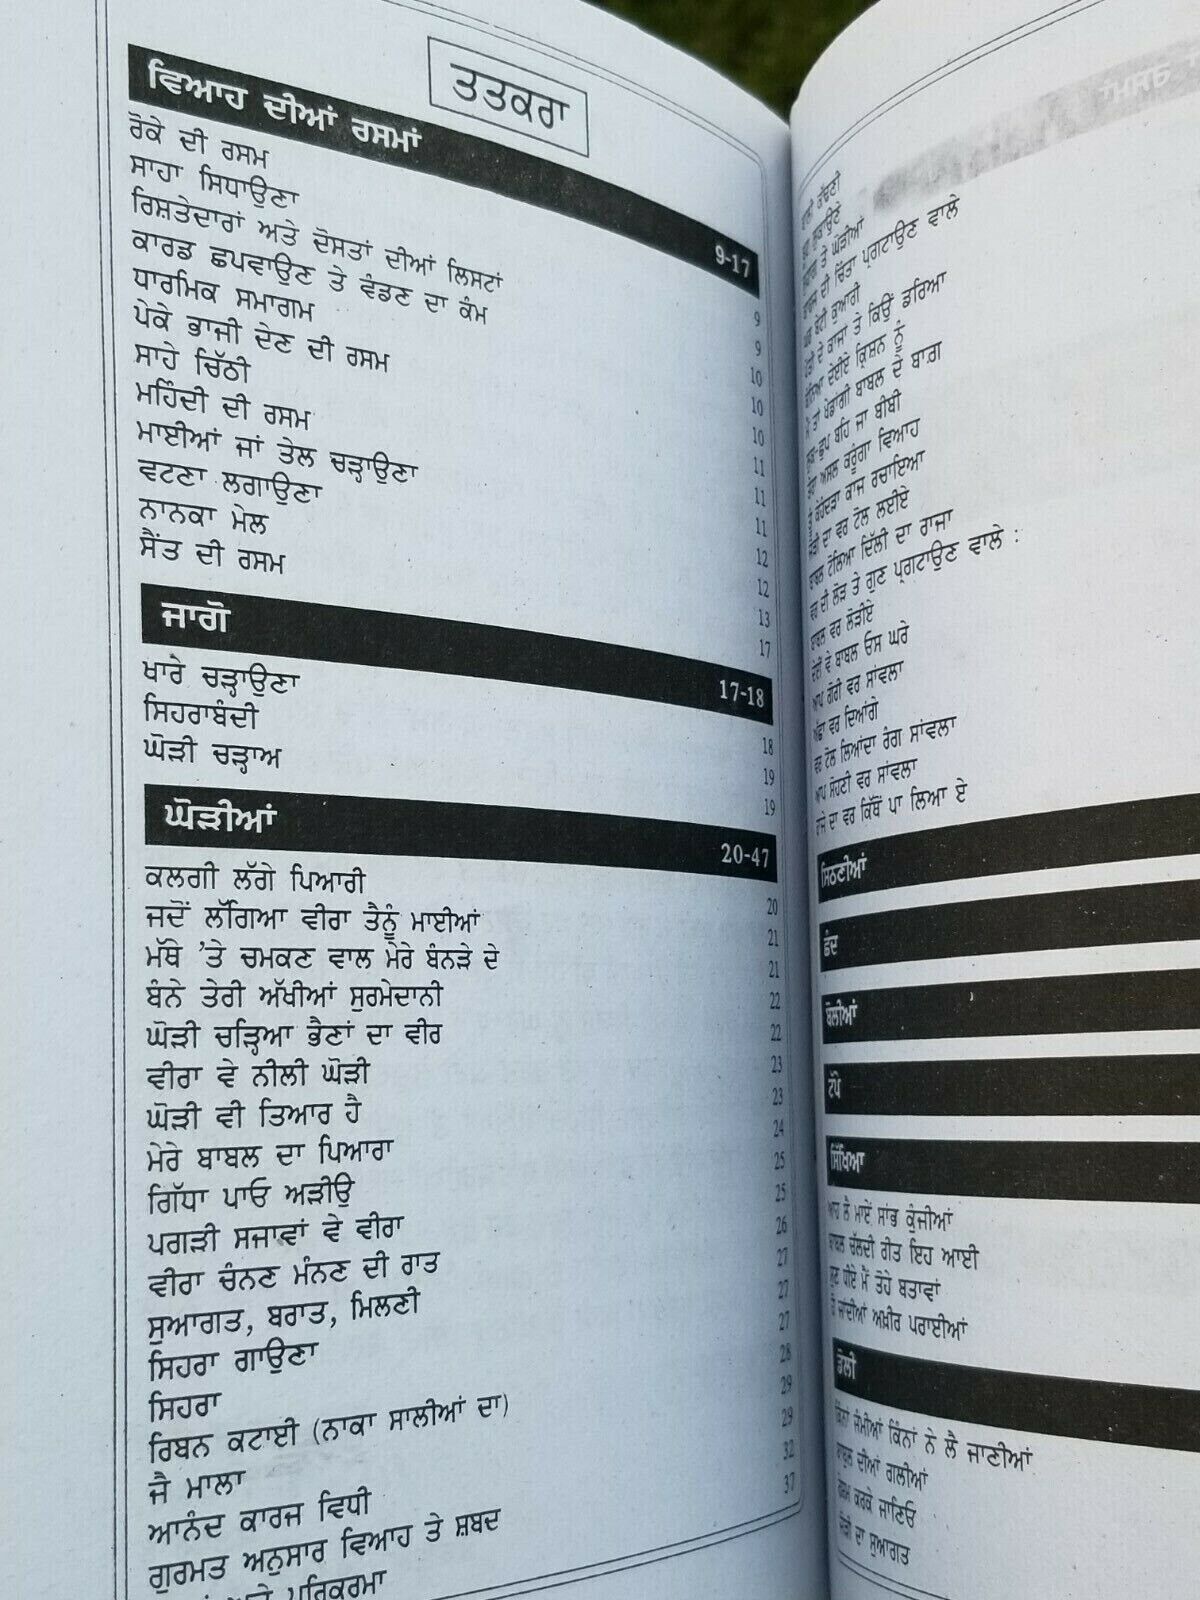 ਤਤਕਰਾ
ਵਿਆਹ ਦੀਆਂ ਰਸਮਾਂ 9-17
ਰੋਕੇ ਦੀ ਰਸਮ 9
ਸਾਹਾ ਸਿਧਾਉਣਾ 9
ਰਿਸ਼ਤੇਦਾਰਾਂ ਅਤੇ ਦੋਸਤਾਂ ਦੀਆਂ ਲਿਸਟਾਂ 10
ਕਾਰਡ ਛਪਵਾਉਣ ਤੇ ਵੰਡਣ ਦਾ ਕੰਮ 10
ਧਾਰਮਿਕ ਸਮਾਗਮ 10
ਪੇਕੇ ਭਾਜੀ ਦੇਣ ਦੀ ਰਸਮ 11
ਸਾਹੇ ਚਿੱਠੀ 11
ਮਹਿੰਦੀ ਦੀ ਰਸਮ 11
ਮਾਈਆਂ ਜਾਂ ਤੇਲ ਚੜ੍ਹਾਉਣਾ 12
ਵਟਣਾ ਲਗਾਉਣਾ 12
ਨਾਨਕਾ ਮੇਲ 13
ਸੈਂਤ ਦੀ ਰਸਮ 17
ਜਾਗੋ 17-18
ਖਾਰੇ ਚੜ੍ਹਾਉਣਾ 18
ਸਿਹਰਾਬੰਦੀ 19
ਘੋੜੀ ਚੜ੍ਹਾਅ 19
ਘੋੜੀਆਂ 20-47
ਕਲਗੀ ਲੱਗੇ ਪਿਆਰੀ 20
ਜਦੋਂ ਲੱਗਿਆ ਵੀਰਾ ਤੈਨੂੰ ਮਾਈਆਂ 21
ਮੱਥੇ 'ਤੇ ਚਮਕਣ ਵਾਲ ਮੇਰੇ ਬੰਨੜੇ ਦੇ 21
ਬੰਨੇ ਤੇਰੀ ਅੱਖੀਆਂ ਸੁਰਮੇਦਾਨੀ 22
ਘੋੜੀ ਚੜ੍ਹਿਆ ਭੈਣਾਂ ਦਾ ਵੀਰ 22
ਵੀਰਾ ਵੇ ਨੀਲੀ ਘੋੜੀ 23
ਘੋੜੀ ਵੀ ਤਿਆਰ ਹੈ 23
ਮੇਰੇ ਬਾਬਲ ਦਾ ਪਿਆਰਾ 24
ਗਿੱਧਾ ਪਾਓ ਅੜੀਉ 25
ਪਗੜੀ ਸਜਾਵਾਂ ਵੇ ਵੀਰਾ 25
ਵੀਰਾ ਚੰਨਣ ਮੰਨਣ ਦੀ ਰਾਤ 26
ਸੁਆਗਤ, ਬਰਾਤ, ਮਿਲਣੀ 27
ਸਿਹਰਾ ਗਾਉਣਾ 27
ਸਿਹਰਾ 27
ਰਿਬਨ ਕਟਾਈ (ਨਾਕਾ ਸਾਲੀਆਂ ਦਾ) 28
ਜੈ ਮਾਲਾ 29
ਆਨੰਦ ਕਾਰਜ ਵਿਧੀ 29
ਗੁਰਮਤ ਅਨੁਸਾਰ ਵਿਆਹ ਤੇ ਸ਼ਬਦ 32
ਪਰਿਕਰਮਾ 37
ਤੇ ਘੋੜੀਆਂ
ਦੀ ਚਿੰਤਾ ਪ੍ਰਗਟਾਉਣ ਵਾਲੇ
ਬੇਟੀ ਕੁਆਰੀ
ਦੇ ਕਾਜਾ ਤੇ ਕਿਉਂ ਡਰਿਆ
ਦੇਈਏ ਕ੍ਰਿਸ਼ਨ ਨੂੰ
ਤਾਂ ਖੇਡਾਂਗੀ ਬਾਬਲ ਦੇ ਬਾਗ਼
ਬਹਿ ਜਾ ਬੀਬੀ
ਅਸਲ ਕਰੂੰਗਾ ਵਿਆਹ
ਕਾਜ ਰਚਾਇਆ
ਦਾ ਵਰ ਟੋਲ ਲਈਏ
ਟੋਲਿਆ ਦਿੱਲੀ ਦਾ ਰਾਜਾ
ਦੀ ਲੋੜ ਤੇ ਗੁਣ ਪ੍ਰਗਟਾਉਣ ਵਾਲੇ :
ਬਾਬਲ ਵਰ ਲੋੜੀਏ
ਵੇ ਬਾਬਲ ਓਸ ਘਰੇ
ਆਪ ਗੋਰੀ ਵਰ ਸਾਂਵਲਾ
ਅੱਛਾ ਵਰ ਦਿਆਂਗੇ
ਵਰ ਟੋਲ ਲਿਆਂਦਾ ਰੰਗ ਸਾਂਵਲਾ
ਆਪ ਸੋਹਣੀ ਵਰ ਸਾਂਵਲਾ
ਦਾ ਵਰ ਕਿੱਥੋਂ ਪਾ ਲਿਆ ਏ
ਸਿਠਣੀਆਂ
ਛੰਦ
ਬੋਲੀਆਂ
ਟੱਪੇ
ਸਿੱਖਿਆ
ਲੈ ਮਾਏਂ ਸਾਂਭ ਕੁੰਜੀਆਂ
ਬਾਬਲ ਚੱਲਦੀ ਰੀਤ ਇਹ ਆਈ
ਸੁਣ ਧੀਏ ਮੈਂ ਤੋਹੇ ਬਤਾਵਾਂ
ਜਾਂਦੀਆਂ ਅਖ਼ੀਰ ਪਰਾਈਆਂ
ਡੋਲੀ
ਕਿੰਨਾਂ ਜੰਮੀਆਂ ਕਿੰਨਾਂ ਨੇ ਲੈ ਜਾਣੀਆਂ
ਬਾਬੁਲ ਦੀਆਂ ਗਲੀਆਂ
ਕਰਕੇ ਜਾਣਿਓ
ਦਾ ਸੁਆਗਤ